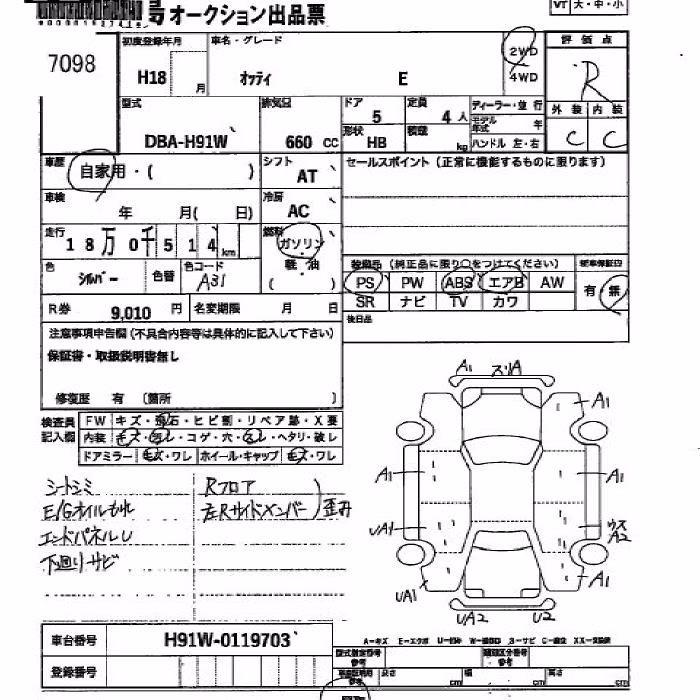 号オークション出品票
VT 大・中・小
7098
初度登録年月 車名・グレード 2WD 評価点
H18 月 オッティ E 4WD R
型式 排気量 ドア 5 定員 4 人 ディーラー・並行 外装 内装
DBA-H91W 660 CC 形状 HB 積載 kg モデル年式 年 C C
ハンドル 左・右
車歴 自家用・( ) シフト AT セールスポイント (正常に機能するものに限ります)
車検 年 月( 日) 冷房 AC
走行 18万0千514km 燃料 ガソリン・軽油 ( )
装備品 (純正品に限り○をつけてください) 新車保証書
色 シルバー 色替 色コード A31 PS PW ABS エアB AW 有・無
SR ナビ TV カワ
R券 9,010 円 名変期限 月 日 後日品
注意事項申告欄(不具合内容等は具体的に記入して下さい)
保証書・取扱説明書無し
修復歴 有 (箇所 )
検査員記入欄 FW キズ・飛石・ヒビ割・リペア跡・X要
内装 キズ・汚レ・コゲ・穴・スレ・ヘタリ・破レ
ドアミラー キズ・ワレ ホイール・キャップ キズ・ワレ
シートシミ Rフロア
E/Gオイルもれ 左Rサイドメンバー)歪み
エンドパネルU
下廻りサビ
A1 スリA
A1
A1 A1
UA1 ウスA2
UA1 A1
UA2 U2
車台番号 H91W-0119703
登録番号
A-キズ E-エクボ U-凹み W-補修跡 S-サビ C-腐食 XX-交換済
型式指定番号 参考 類別区分番号 参考
参考 長さ cm 幅 cm 高さ cm